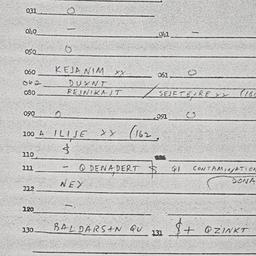 031 O
040 — 041 —
050 O
060 KEJANIM xx 061 O
062 DUYNT
080 REJNIKAJT / SEJKTEJRE xx (162
090 O 091 O
100 A ILIJE xx (162
110
111 - QDENADERT QI CONTAMINATION
212 NEY
120 —
130 BALDARS+N QU 131 + QZINKT